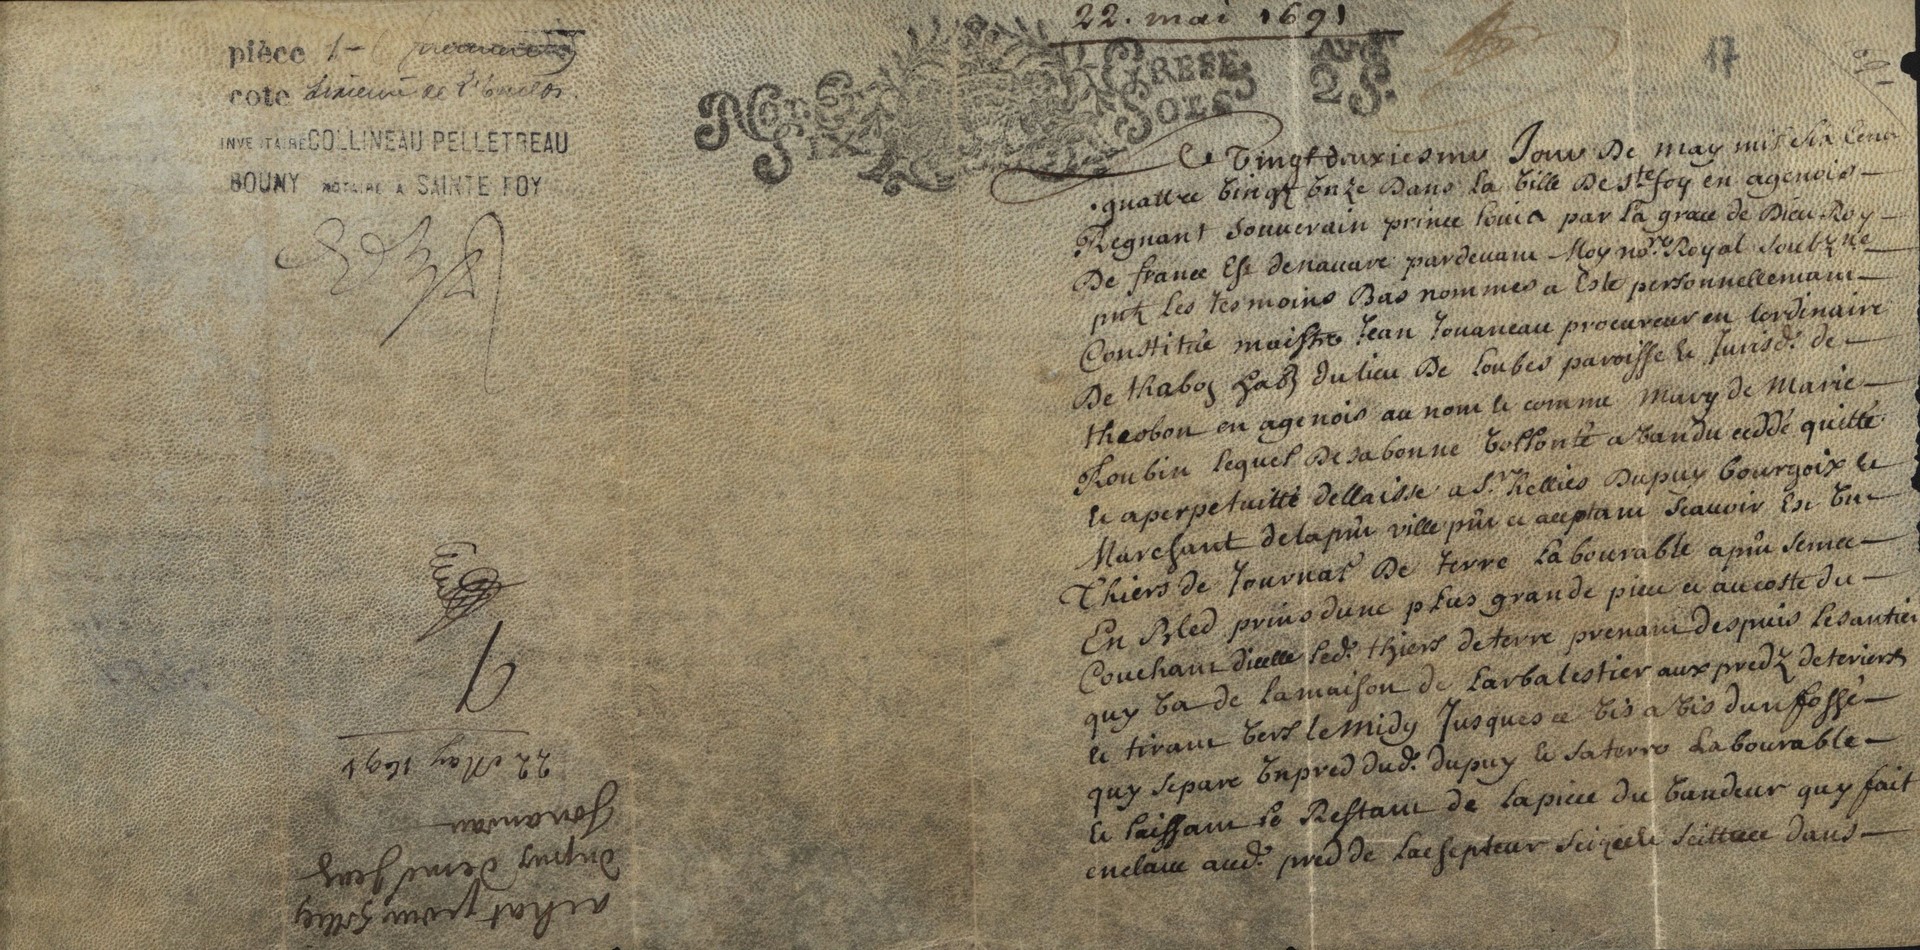 22. mai 1691
pièce 1-
cote de l'Enclos.
INVENTAIRE COLLINEAU PELLETREAU
BOUNY NOTAIRE A SAINTE FOY
GREFE
SIX SOLS 2 S.
17
Le Vingt deuxiesme Jour De may mil six Cens
quattre Vingt Unze Dans La Ville De Ste foy en agenois
Regnant Souverain prince Louis par La grace de Dieu Roy
De france Et denavare pardevant Moy nore Royal Soubzne
put Les Tesmoins Bas nommes a Este personnellemant
Constitué maistre Jean Jouaneau procureur en Lordinaire
De du lieu De Loubes paroisse et Jurisdn de
theobon en agenois au nom et comme Mary de Marie
Roubin lequel De sa bonne Vollonté a Vandu ceddé quitté
et aperpetuitté dellaisse a Sr hellies Dupuy bourgoix et
Marchant delapnt ville pnt et aceptant Scavoir Est Un
Thiers de Journal De Terre Labourable apnt semee
En Bled prins dune plus grande piece et au coste du
Couchant dicelle Led. thiers de terre prenant despuis Lesantier
quy Va de Lamaison de Larbalestier aux predz deteriers
et tirant Vers le Midy Jusques a Vis a Vis dun fossé
quy separe Unpred dud. dupuy et saterre Labourable
et laissant Le Restant de Lapiece du Vandeur quy fait
enclave aud. pred de Lachepteur Scituee dans
achat pour hellies
dupuy demesjeas
Jouaneau
22 May 1691